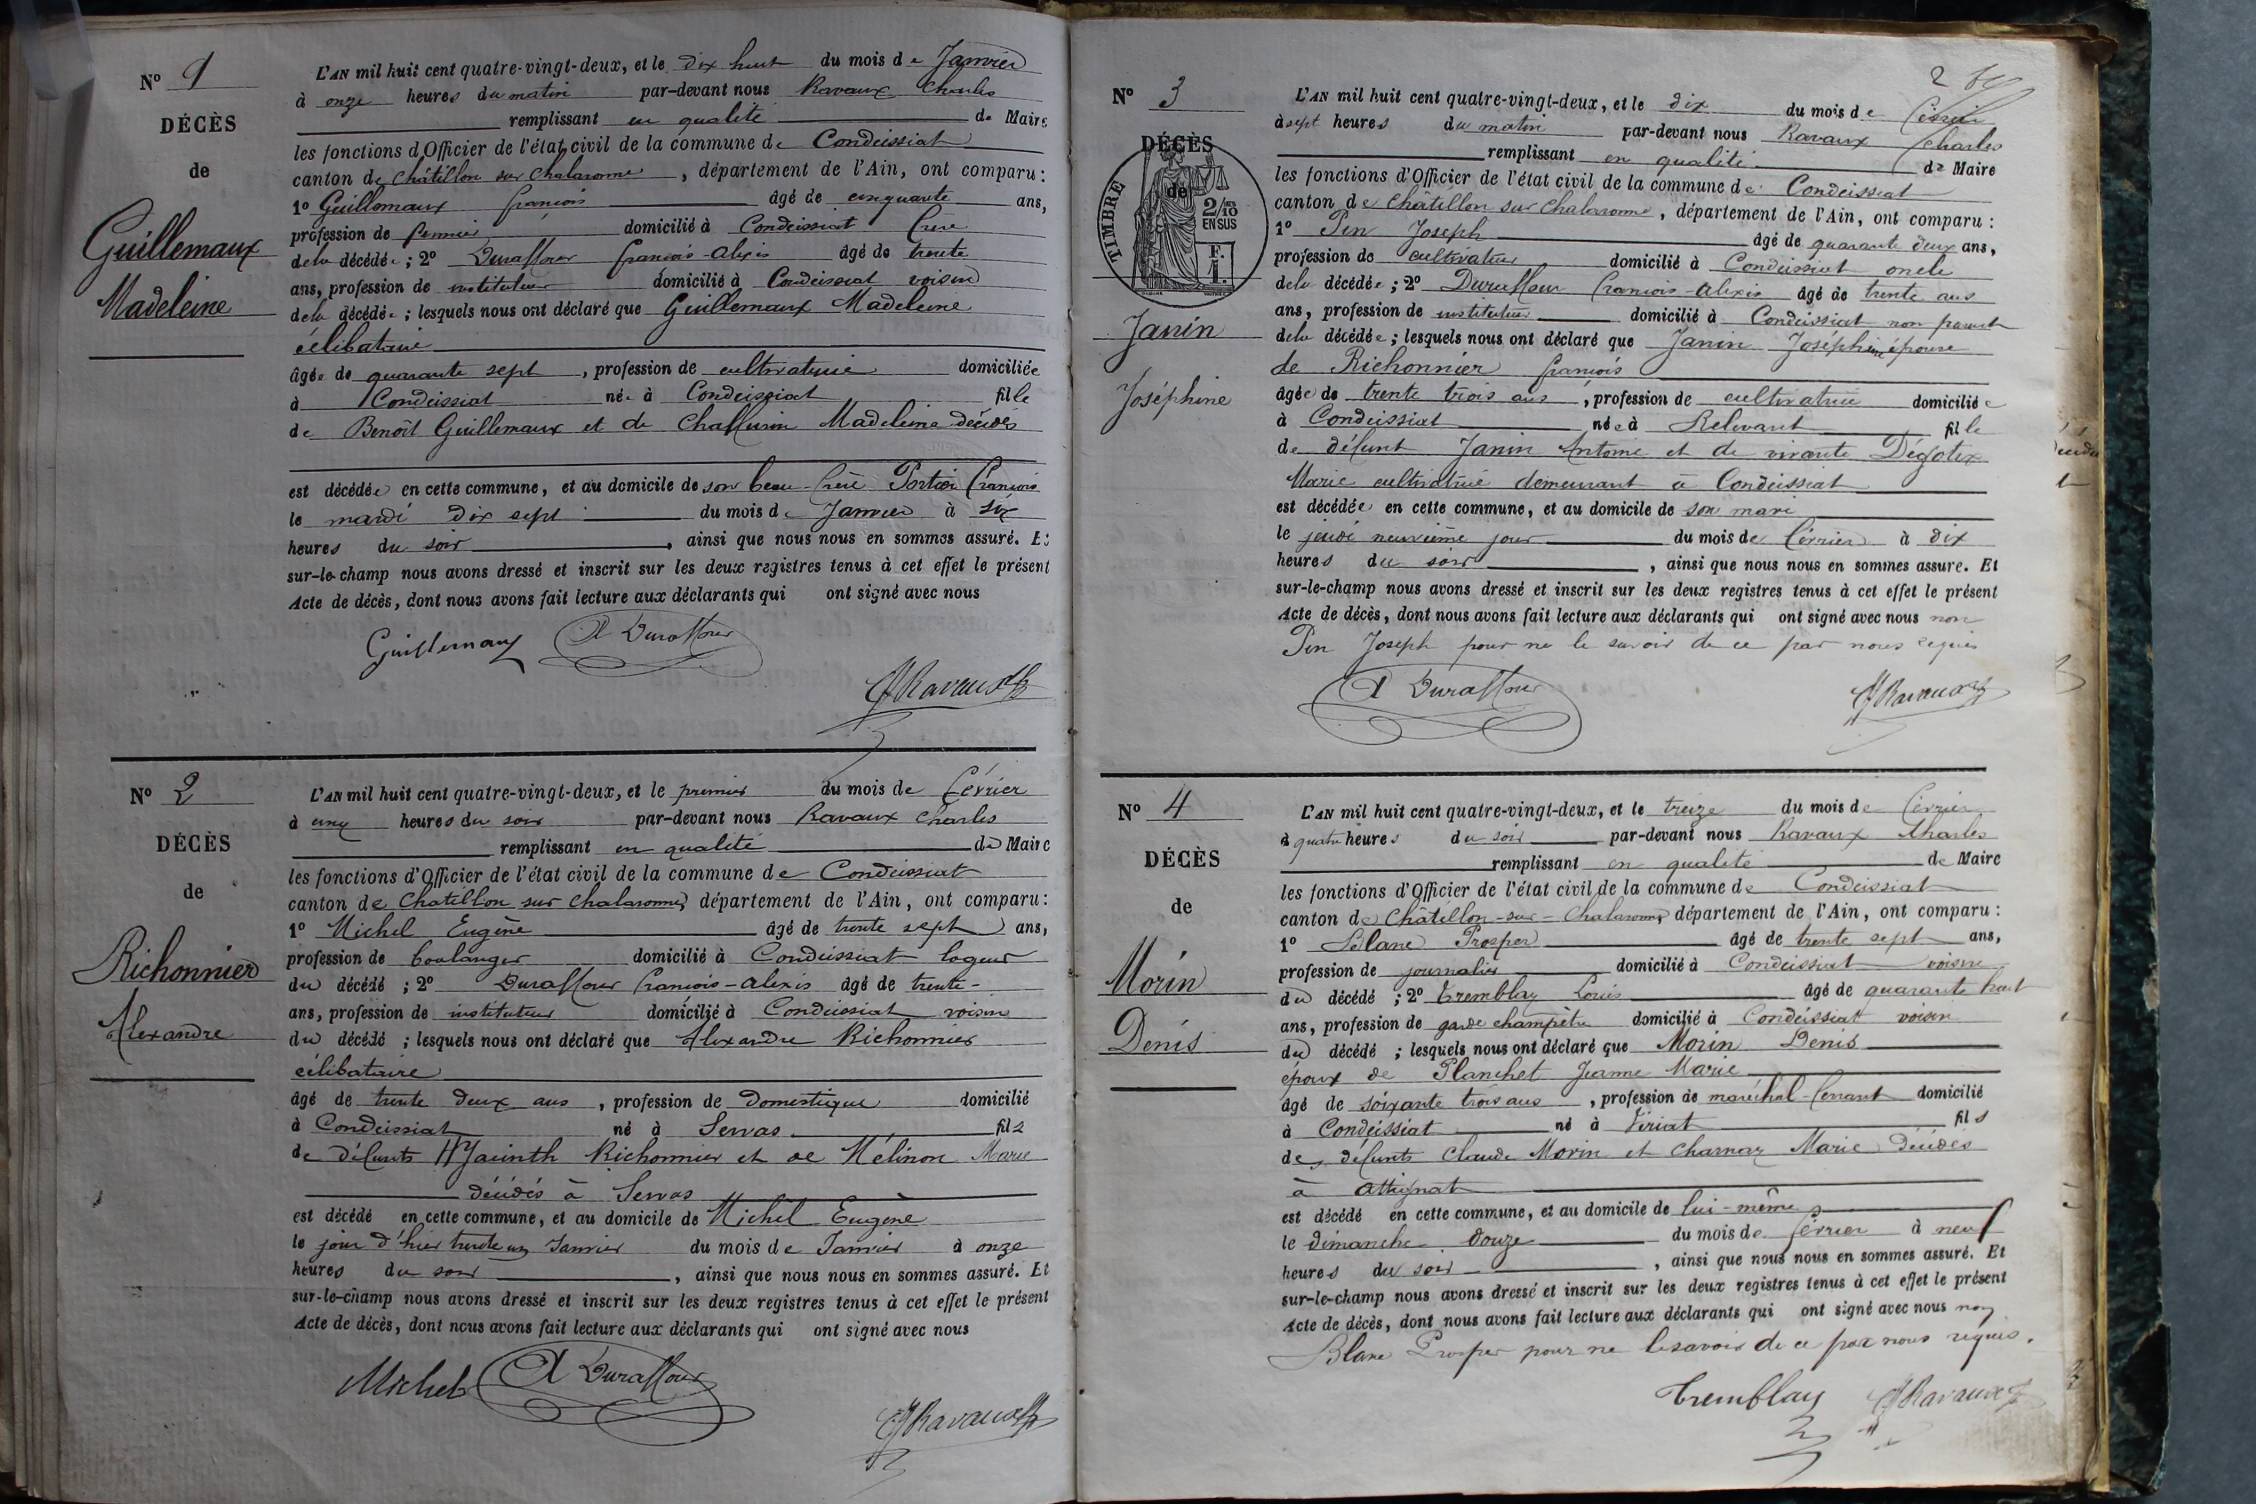 No 1
DÉCÈS
de
Guillemaux
Madeleine
L'AN mil huit cent quatre-vingt-deux, et le dix huit du mois de Janvier
à onze heures du matin par-devant nous Ravaux Charles
remplissant en qualité de Maire
les fonctions d'Officier de l'état civil de la commune de Condeissiat
canton de Châtillon sur Chalaronne, département de l'Ain, ont comparu :
1o Guillemaux françois âgé de cinquante ans,
profession de fermier domicilié à Condeissiat frère
de la décédée ; 2o Duraffour françois-alexis âgé de trente
ans, profession de instituteur domicilié à Condeissiat voisin
de la décédée ; lesquels nous ont déclaré que Guillemaux Madeleine
célibataire
âgée de quarante sept, profession de cultivatrice domiciliée
à Condeissiat née à Condeissiat fille
de Benoît Guillemaux et de Madeleine décédés
est décédée en cette commune, et au domicile de son beau-frère Portier François
le mardi dix sept du mois de Janvier à six
heures du soir, ainsi que nous nous en sommes assuré. Et
sur-le-champ nous avons dressé et inscrit sur les deux registres tenus à cet effet le présent
Acte de décès, dont nous avons fait lecture aux déclarants qui ont signé avec nous
Guillemaux A Duraffour
Ravaux
No 2
DÉCÈS
de
Richonnier
Alexandre
L'AN mil huit cent quatre-vingt-deux, et le premier du mois de Février
à une heures du soir par-devant nous Ravaux Charles
remplissant en qualité de Maire
les fonctions d'Officier de l'état civil de la commune de Condeissiat
canton de Chatillon sur Chalaronne, département de l'Ain, ont comparu :
1o Michel Eugène âgé de trente sept ans,
profession de boulanger domicilié à Condeissiat logeur
du décédé ; 2o Duraffour françois-alexis âgé de trente
ans, profession de instituteur domicilié à Condeissiat voisin
du décédé ; lesquels nous ont déclaré que Alexandre Richonnier
célibataire
âgé de trente deux ans, profession de Domestique domicilié
à Condeissiat né à Servas fils
de défunts Hyacinth Richonnier et de Mélinon Marie
décédés à Servas
est décédé en cette commune, et au domicile de Michel Eugène
le jour d'hier trente un Janvier du mois de Janvier à onze
heures du soir, ainsi que nous nous en sommes assuré. Et
sur-le-champ nous avons dressé et inscrit sur les deux registres tenus à cet effet le présent
Acte de décès, dont nous avons fait lecture aux déclarants qui ont signé avec nous
Michel A Duraffour
Ravaux
2
No 3
DÉCÈS
de
TIMBRE
2/10
EN SUS
F.
1.
Janin
Joséphine
L'AN mil huit cent quatre-vingt-deux, et le dix du mois de Février
à sept heures du matin par-devant nous Ravaux Charles
remplissant en qualité de Maire
les fonctions d'Officier de l'état civil de la commune de Condeissiat
canton de Châtillon sur Chalaronne, département de l'Ain, ont comparu :
1o Pin Joseph âgé de quarante deux ans,
profession de cultivateur domicilié à Condeissiat oncle
de la décédée ; 2o Duraffour François-alexis âgé de trente ans
ans, profession de instituteur domicilié à Condeissiat non parent
de la décédée ; lesquels nous ont déclaré que Janin Joséphine épouse
de Richonnier françois
âgée de trente trois ans, profession de cultivatrice domiciliée
à Condeissiat née à Relevant fille
de défunt Janin Antoine et de vivante
Marie cultivatrice demeurant à Condeissiat
est décédée en cette commune, et au domicile de son mari
le jeudi neuvième jour du mois de février à dix
heures du soir, ainsi que nous nous en sommes assuré. Et
sur-le-champ nous avons dressé et inscrit sur les deux registres tenus à cet effet le présent
Acte de décès, dont nous avons fait lecture aux déclarants qui ont signé avec nous non
Pin Joseph pour ne le savoir de ce par nous requis
A Duraffour Ravaux
No 4
DÉCÈS
de
Morin
Denis
L'AN mil huit cent quatre-vingt-deux, et le treize du mois de Février
à quatre heures du soir par-devant nous Ravaux Charles
remplissant en qualité de Maire
les fonctions d'Officier de l'état civil de la commune de Condeissiat
canton de Châtillon-sur-Chalaronne, département de l'Ain, ont comparu :
1o Blanc Prosper âgé de trente sept ans,
profession de journalier domicilié à Condeissiat voisin
du décédé ; 2o Tremblay Louis âgé de quarante huit
ans, profession de garde champêtre domicilié à Condeissiat voisin
du décédé ; lesquels nous ont déclaré que Morin Denis
époux de Planchet Jeanne Marie
âgé de soixante trois ans, profession de maréchal-ferrant domicilié
à Condeissiat né à Viriat fils
des défunts Claude Morin et Charnay Marie Décédés
à Attignat
est décédé en cette commune, et au domicile de lui-même
le dimanche douze du mois de février à neuf
heures du soir, ainsi que nous nous en sommes assuré. Et
sur-le-champ nous avons dressé et inscrit sur les deux registres tenus à cet effet le présent
Acte de décès, dont nous avons fait lecture aux déclarants qui ont signé avec nous non
Blanc Prosper pour ne le savoir de ce par nous requis.
Tremblay Ravaux